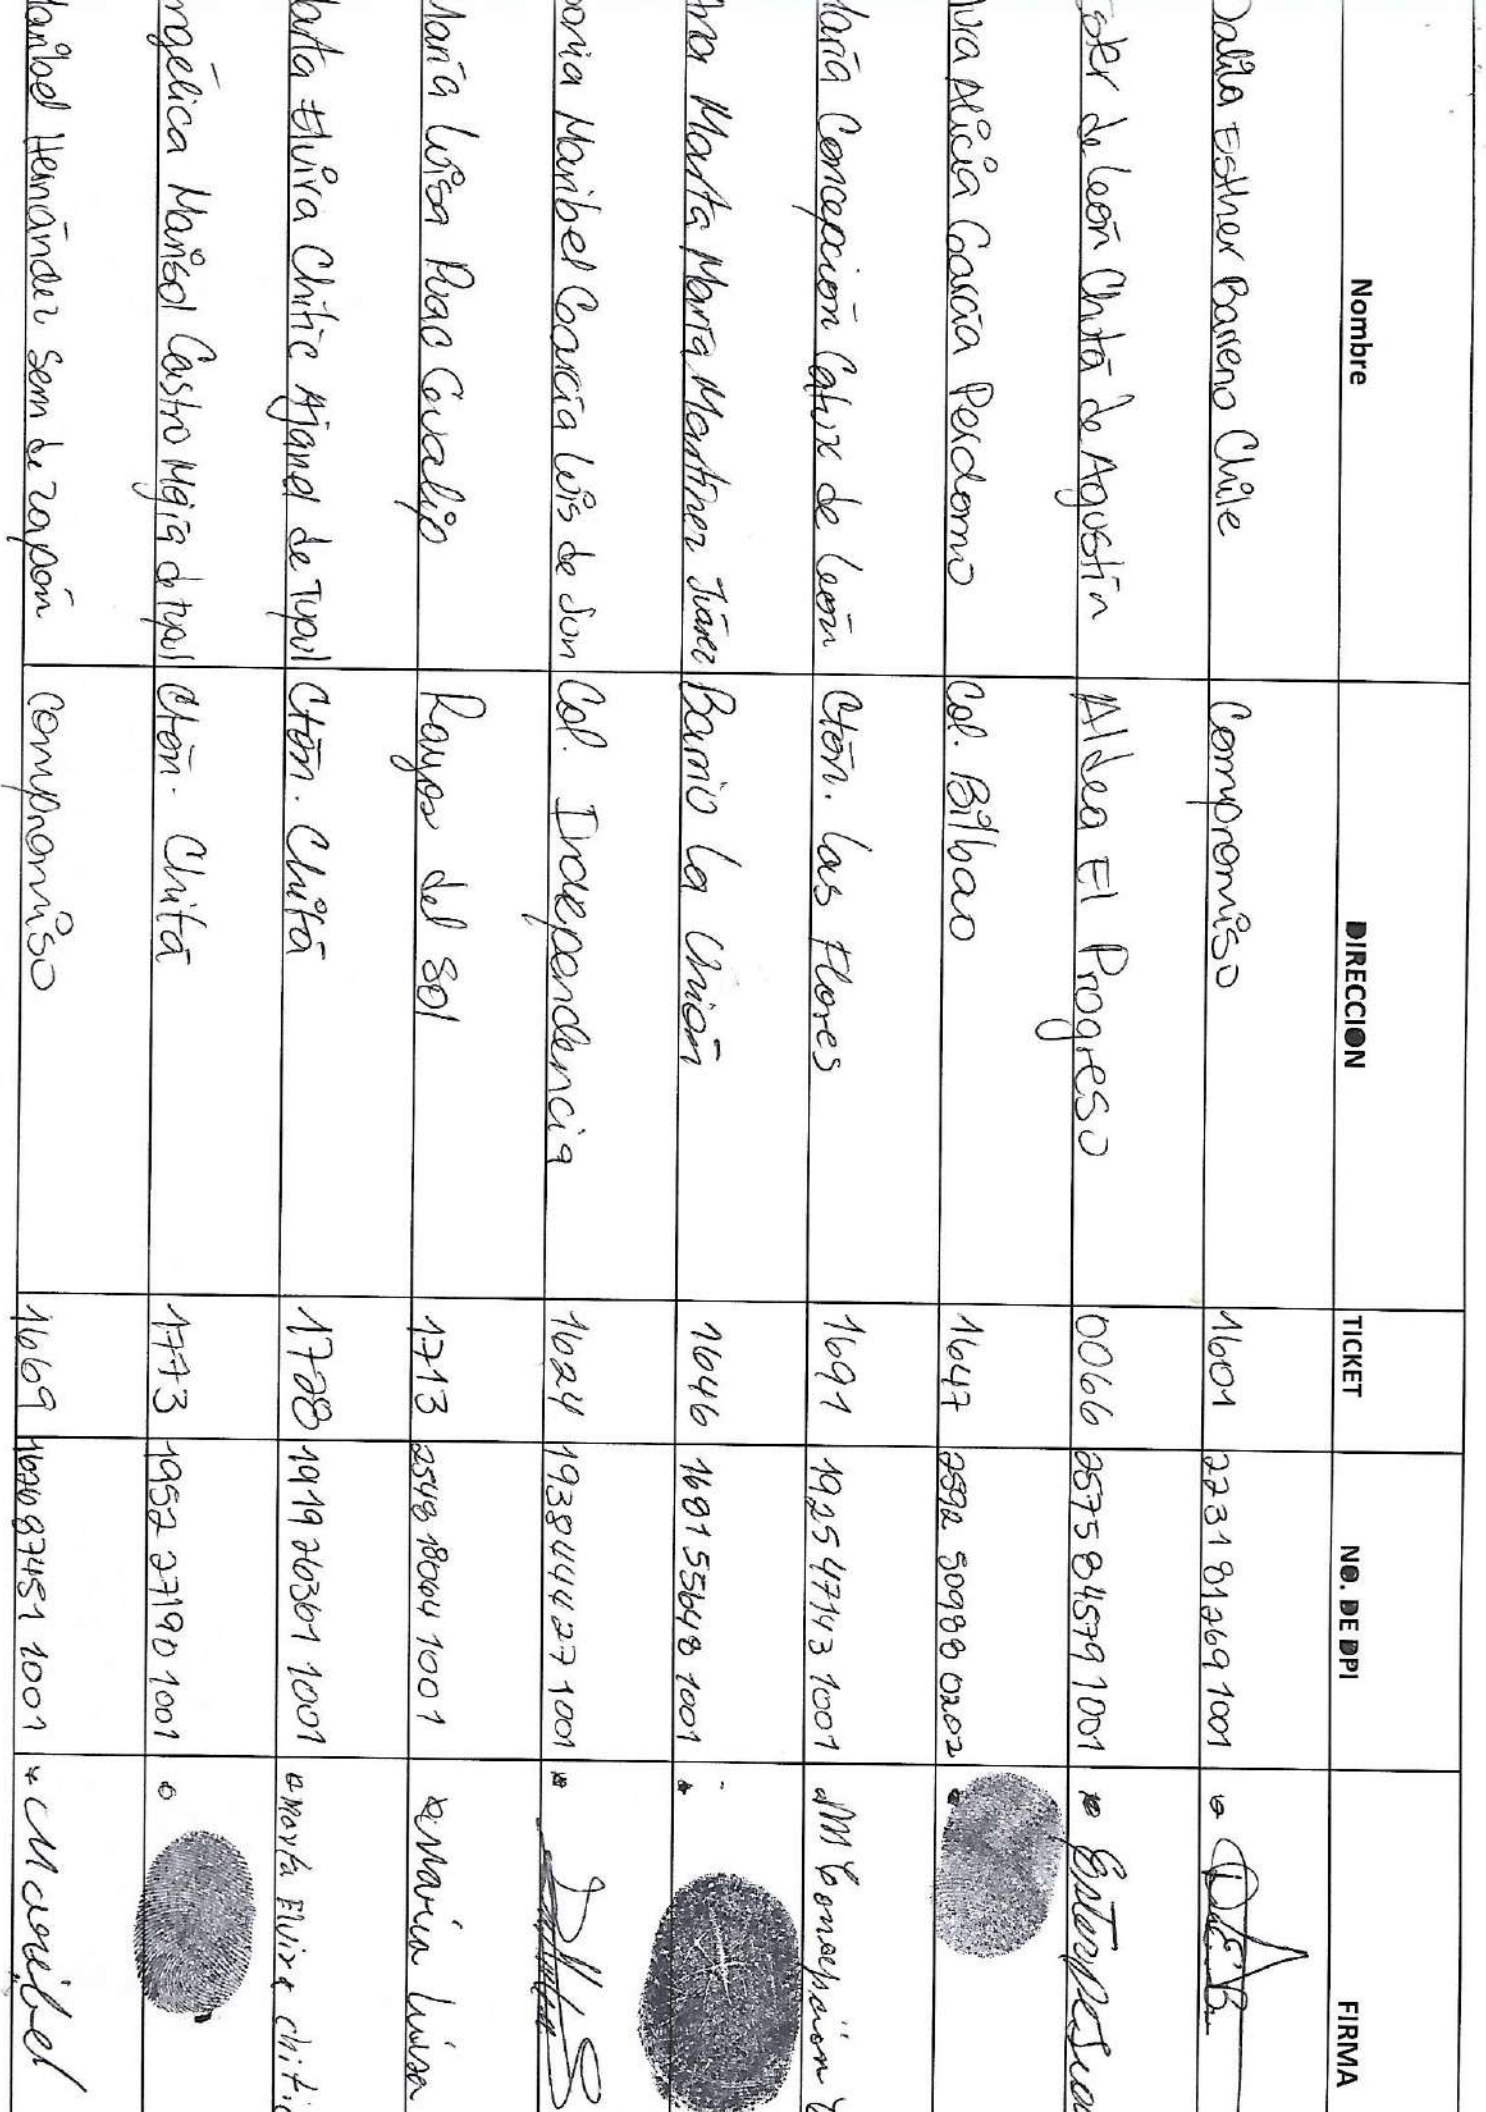 Nombre DIRECCION TICKET NO. DE DPI FIRMA
Dalila Esther Barreno Chile Compromiso 1601 2231 81269 1001
ster de León Chutá de Agustín Aldea El Progreso 0066 2575 84579 1001
ura Alicia García Perdomo Col. Bilbao 1647 2592 50988 0202
María Concepción Catux de León Ctón. Las Flores 1691 1925 47143 1001 M Concepción
Ana Marta María Martínez Juárez Barrio La Unión 1646 1681 55648 1001
onia Maribel García Luis de Sun Col. Independencia 1624 1938 44427 1001
María Luisa Puac Cavalijo Rayos del Sol 1713 2548 18064 1001 María Luisa
arta Elvira Chitic Ajanel de Tupul Ctón. Chitá 1728 1919 26361 1001 Marta Elvira Chiti
ngélica Marisol Castro Mejía de tupul Ctón. Chitá 1773 1952 27190 1001
Maribel Hernández Sem de Zapón Compromiso 1669 1626 87451 1001 Maribel